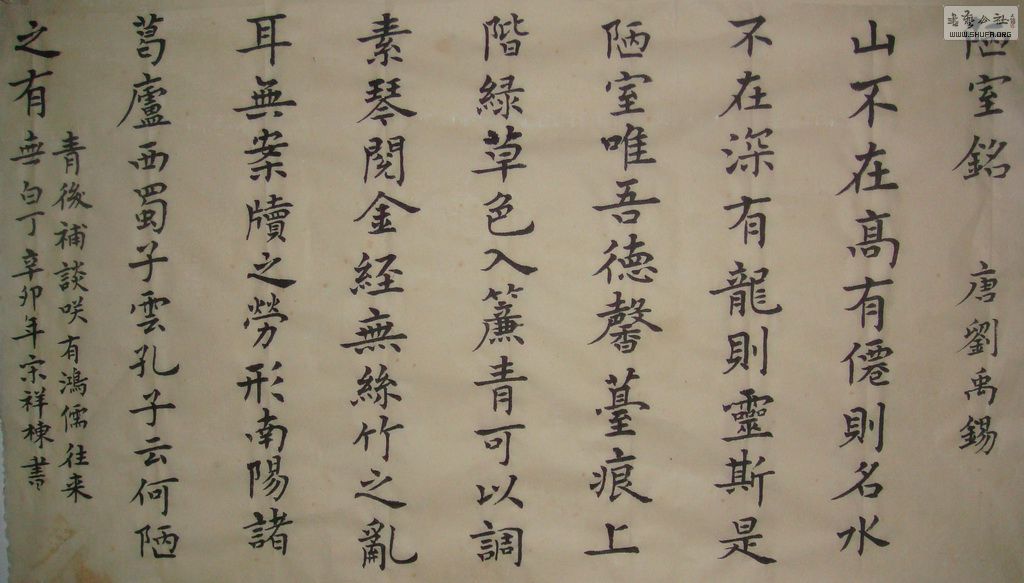 陋室銘 唐劉禹錫
山不在髙有僊則名水
不在深有龍則靈斯是
陋室唯吾德馨薹痕上
階緑草色入簾青可以調
素琴閱金経無絲竹之亂
耳無案牘之勞形南陽諸
葛廬西蜀子雲孔子云何陋
之有
青後補談咲有鴻儒往来
無白丁辛卯年宋祥棟書
書藝公社
WWW.SHUFA.ORG